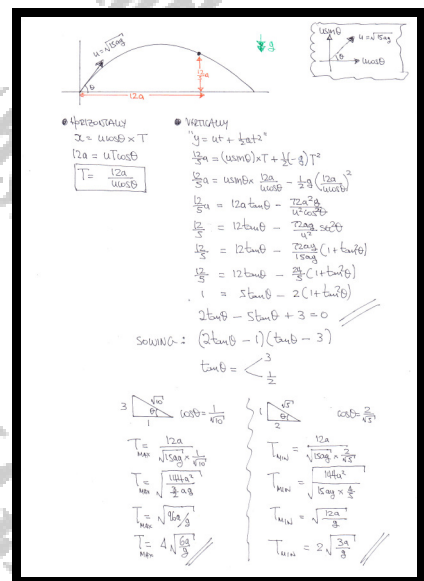 u=√15ag
θ
12/5 a
12a
g
usinθ
u=√15ag
θ
ucosθ
● HORIZONTALLY
x = ucosθ × T
12a = uTcosθ
T = 12a/ucosθ
● VERTICALLY
"y = ut + ½at²"
12/5 a = (usinθ)×T + ½(-g)T²
12/5 a = usinθ × 12a/ucosθ - ½g(12a/ucosθ)²
12/5 a = 12a tanθ - 72a²g/u²cos²θ
12/5 = 12tanθ - 72ag/u² sec²θ
12/5 = 12tanθ - 72ag/15ag (1+tan²θ)
12/5 = 12tanθ - 24/5 (1+tan²θ)
1 = 5tanθ - 2(1+tan²θ)
2tan²θ - 5tanθ + 3 = 0
SOLVING: (2tanθ - 1)(tanθ - 3)
tanθ = < 3
1/2
3 √10 θ 1
cosθ = 1/√10
T MAX = 12a / √15ag × 1/√10
T MAX = √(144a² / 3/2 ag)
T MAX = √96a/g
T MAX = 4√6a/g
1 √5 θ 2
cosθ = 2/√5
T MIN = 12a / √15ag × 2/√5
T MIN = √(144a² / 15ag × 4/5)
T MIN = √12a/g
T MIN = 2√3a/g